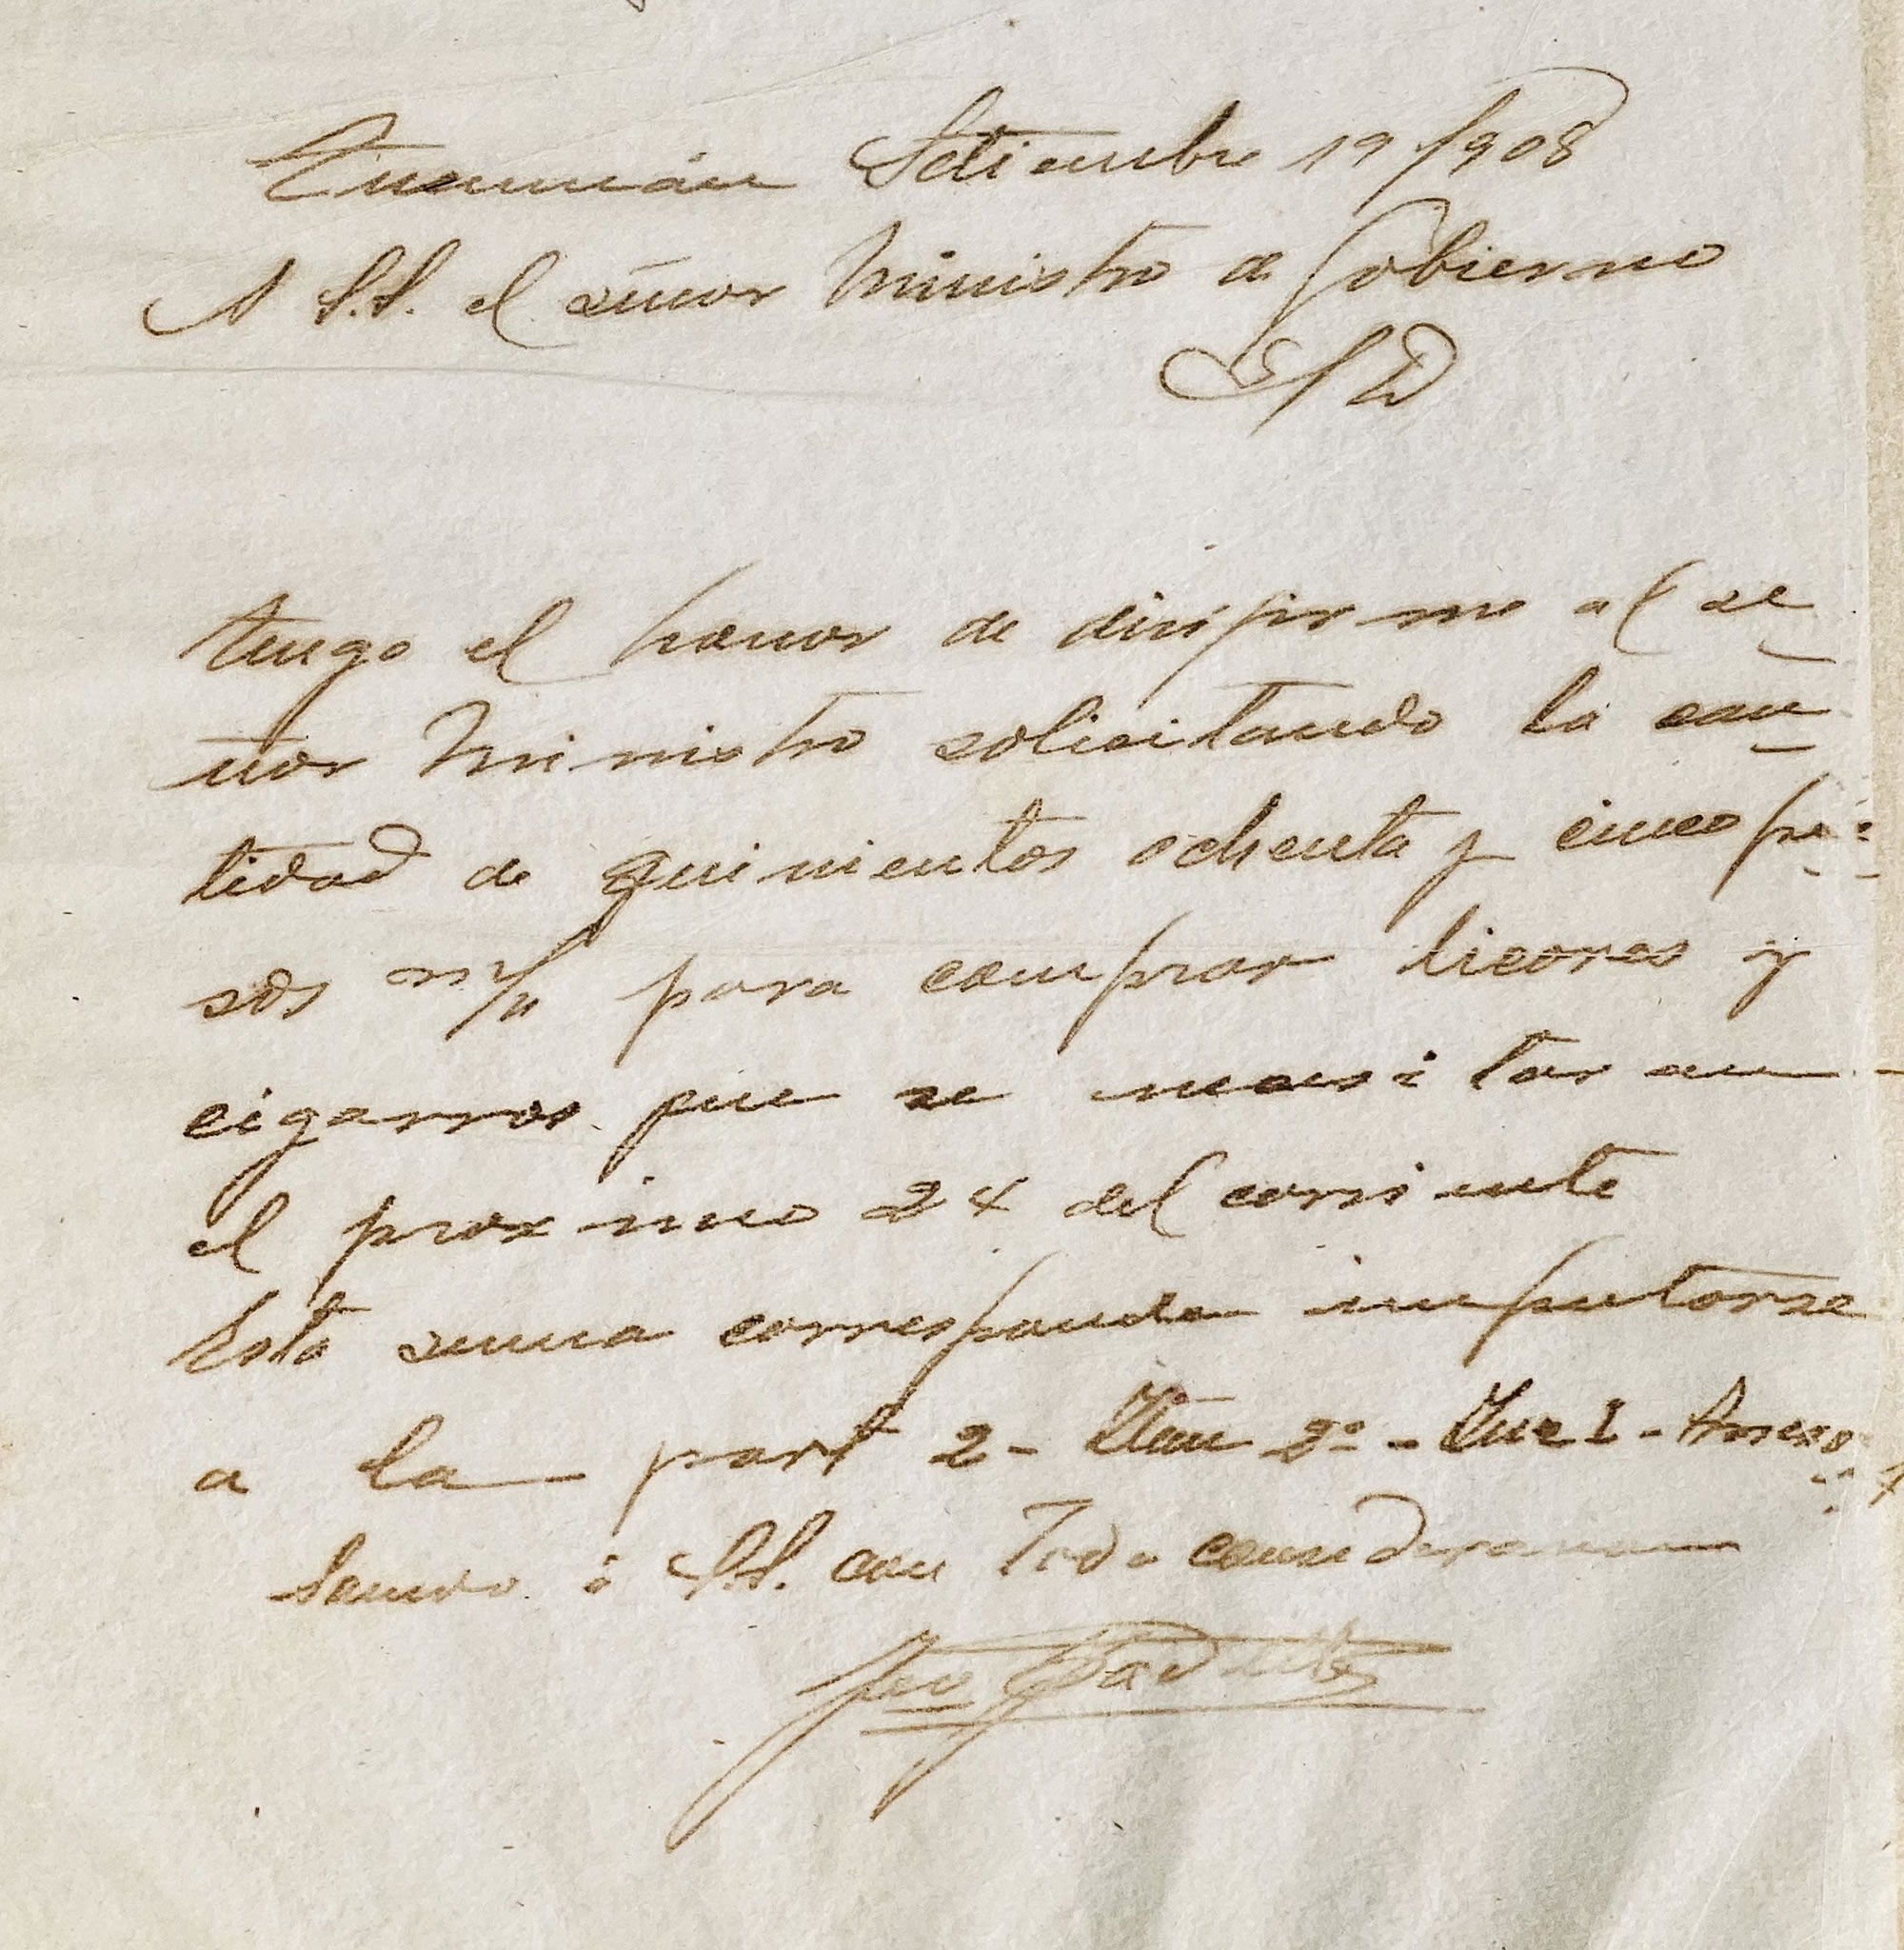 Tucumán Setiembre 19/908
A S.S. el señor Ministro de Gobierno
S/D
tengo el honor de dirijirme al se
ñor Ministro solicitando la can
tidad de quinientos ochenta y cinco pe
sos m/n para comprar licores y
cigarros que se necesitaran
el proximo 24 del corriente
Esta suma corresponde imputarse
a la part 2 - Item 2º - Inc 1 - Anexo
Saludo á S.S. con toda consideracion